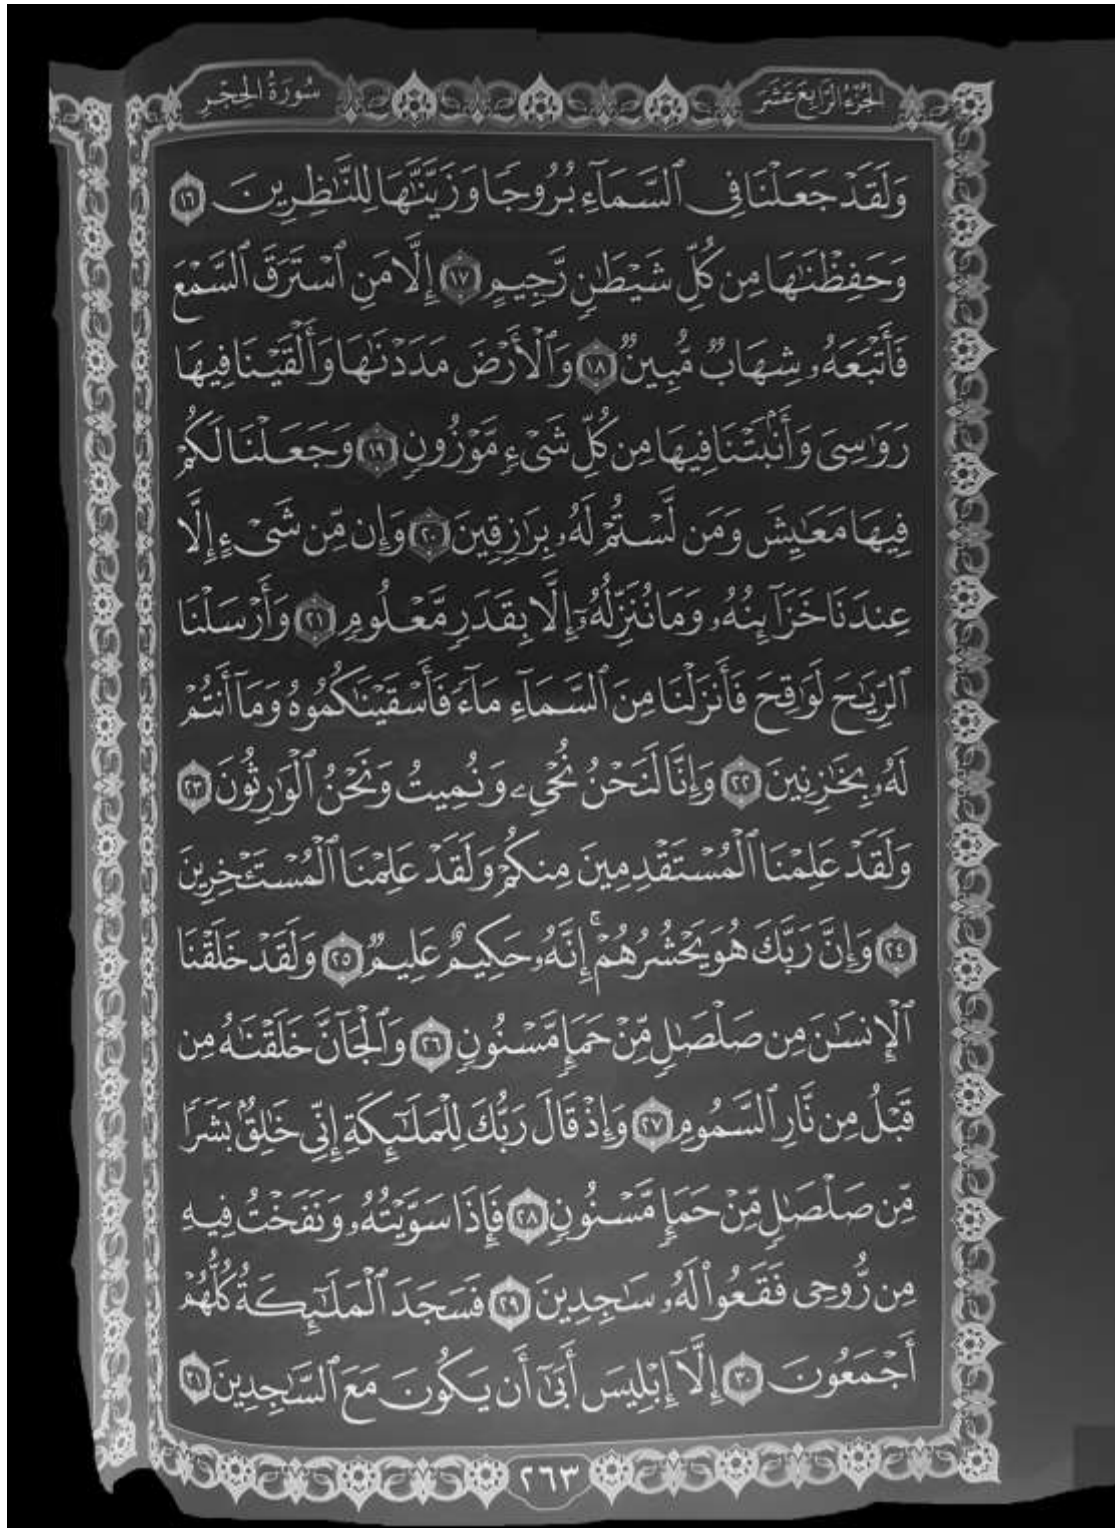 الجُزْءُ الرَّابِعُ عَشَرَ
سُورَةُ الحِجْرِ
وَلَقَدْ جَعَلْنَا فِى ٱلسَّمَآءِ بُرُوجًا وَزَيَّنَّٰهَا لِلنَّٰظِرِينَ ١٦
وَحَفِظْنَٰهَا مِن كُلِّ شَيْطَٰنٍ رَّجِيمٍ ١٧ إِلَّا مَنِ ٱسْتَرَقَ ٱلسَّمْعَ
فَأَتْبَعَهُۥ شِهَابٌ مُّبِينٌ ١٨ وَٱلْأَرْضَ مَدَدْنَٰهَا وَأَلْقَيْنَا فِيهَا
رَوَٰسِىَ وَأَنۢبَتْنَا فِيهَا مِن كُلِّ شَىْءٍ مَّوْزُونٍ ١٩ وَجَعَلْنَا لَكُمْ
فِيهَا مَعَٰيِشَ وَمَن لَّسْتُمْ لَهُۥ بِرَٰزِقِينَ ٢٠ وَإِن مِّن شَىْءٍ إِلَّا
عِندَنَا خَزَآئِنُهُۥ وَمَا نُنَزِّلُهُۥٓ إِلَّا بِقَدَرٍ مَّعْلُومٍ ٢١ وَأَرْسَلْنَا
ٱلرِّيَٰحَ لَوَٰقِحَ فَأَنزَلْنَا مِنَ ٱلسَّمَآءِ مَآءً فَأَسْقَيْنَٰكُمُوهُ وَمَآ أَنتُمْ
لَهُۥ بِخَٰزِنِينَ ٢٢ وَإِنَّا لَنَحْنُ نُحْىِۦ وَنُمِيتُ وَنَحْنُ ٱلْوَٰرِثُونَ ٢٣
وَلَقَدْ عَلِمْنَا ٱلْمُسْتَقْدِمِينَ مِنكُمْ وَلَقَدْ عَلِمْنَا ٱلْمُسْتَـْٔخِرِينَ
٢٤ وَإِنَّ رَبَّكَ هُوَ يَحْشُرُهُمْ ۚ إِنَّهُۥ حَكِيمٌ عَلِيمٌ ٢٥ وَلَقَدْ خَلَقْنَا
ٱلْإِنسَٰنَ مِن صَلْصَٰلٍ مِّنْ حَمَإٍ مَّسْنُونٍ ٢٦ وَٱلْجَآنَّ خَلَقْنَٰهُ مِن
قَبْلُ مِن نَّارِ ٱلسَّمُومِ ٢٧ وَإِذْ قَالَ رَبُّكَ لِلْمَلَٰٓئِكَةِ إِنِّى خَٰلِقٌۢ بَشَرًا
مِّن صَلْصَٰلٍ مِّنْ حَمَإٍ مَّسْنُونٍ ٢٨ فَإِذَا سَوَّيْتُهُۥ وَنَفَخْتُ فِيهِ
مِن رُّوحِى فَقَعُوا۟ لَهُۥ سَٰجِدِينَ ٢٩ فَسَجَدَ ٱلْمَلَٰٓئِكَةُ كُلُّهُمْ
أَجْمَعُونَ ٣٠ إِلَّآ إِبْلِيسَ أَبَىٰٓ أَن يَكُونَ مَعَ ٱلسَّٰجِدِينَ ٣١
٢٦٣